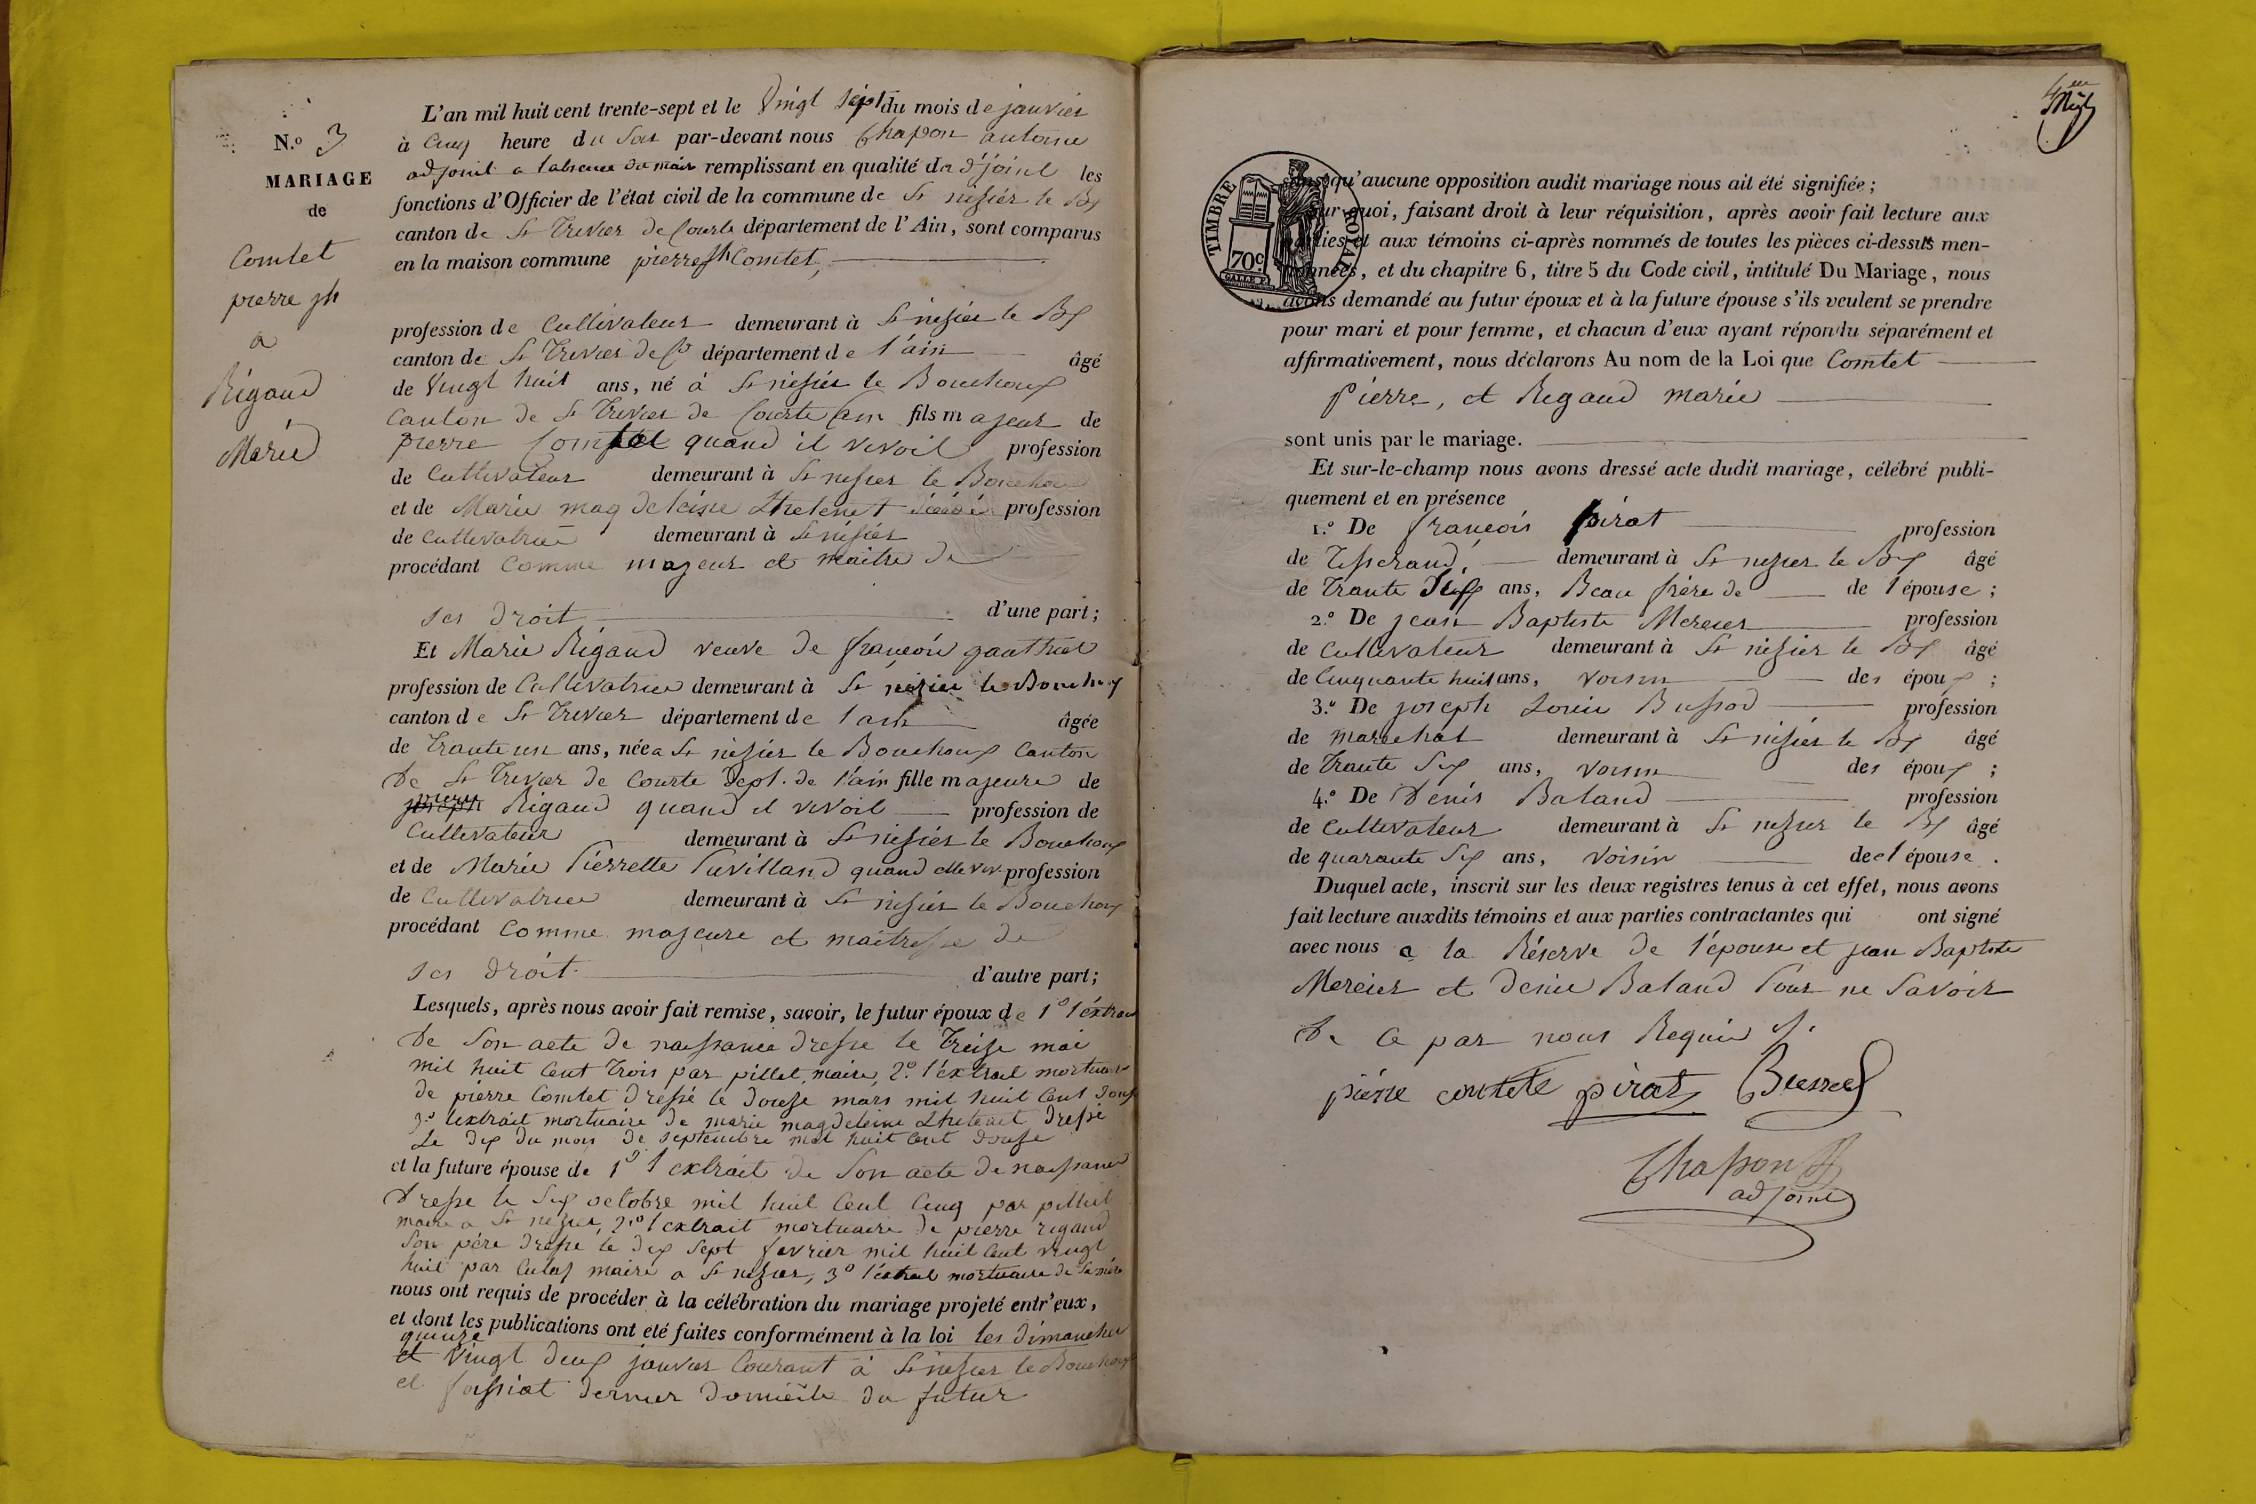 N.º 3
MARIAGE
de
Comtet
pierre jh
a
Rigaud
Marie
L'an mil huit cent trente-sept et le Vingt sept du mois de janvier
à Cinq heure du Soir par-devant nous Chapon antoine
adjoint a l'absence du mair remplissant en qualité d'adjoint les
fonctions d'Officier de l'état civil de la commune de St nizier le Bx
canton de St Trivier de Courte département de l'Ain, sont comparus
en la maison commune pierre jh Comtet,
profession de Cultivateur demeurant à St nizier le Bx
canton de St Trivier de Co département de l'ain âgé
de Vingt huit ans, né à St nizier le Bouchoux
Canton de St Trivier de Courte ain fils majeur de
pierre Comtet quand il vivoit profession
de Cultivateur demeurant à St nizier le Bouchou
et de Marie magdeleine profession
de Cultivatrice demeurant à St nizier
procédant Comme majeur et maitre de
ses droit d'une part;
Et Marie Rigaud veuve de françois gauthier
profession de Cultivatrice demeurant à St nizier le Bouchoux
canton de St Trivier département de l'ain âgée
de Trante un ans, née a St nizier le Bouchoux Canton
de St Trivier de Courte Dept. de l'ain fille majeure de
pierre Rigaud quand il vivoit profession de
Cultivateur demeurant à St nizier le Bouchoux
et de Marie Pierrette Puvilland quand elle viv. profession
de Cultivatrice demeurant à St nizier le Bouchoux
procédant Comme majeure et maitresse de
ses droit d'autre part;
Lesquels, après nous avoir fait remise, savoir, le futur époux de 1º l'éxtrai
de Son acte de naissance dressé le Treize mai
mil huit Cent Trois par pillet, maire, 2º. l'éxtrait mortuair
de pierre Comtet dressé le douze mars mil huit Cent douze
3º lextrait mortuaire de marie magdeleine dressé
Le dix du mois de septembre mil huit Cent douze
et la future épouse de 1º l'extrait de Son acte de naissance
dressé le Six octobre mil huit Cent Cinq par pillet
maire a St nizier, 2º l'extrait mortuaire de pierre rigaud
Son père dressé le dix Sept fevrier mil huit Cent vingt
huit par maire a St nizier, 3º l'éxtrait mortuaire de Sa mère
nous ont requis de procéder à la célébration du mariage projeté entr'eux,
et dont les publications ont été faites conformément à la loi les dimanches
quinze
et Vingt deux janvier Courant à St nizier le Bouchoux
et foissiat dernier domicile du futur
4me
TIMBRE ROYAL
70c
sans qu'aucune opposition audit mariage nous ait été signifiée;
Sur quoi, faisant droit à leur réquisition, après avoir fait lecture aux
parties et aux témoins ci-après nommés de toutes les pièces ci-dessus men-
tionnées, et du chapitre 6, titre 5 du Code civil, intitulé Du Mariage, nous
avons demandé au futur époux et à la future épouse s'ils veulent se prendre
pour mari et pour femme, et chacun d'eux ayant répondu séparément et
affirmativement, nous déclarons Au nom de la Loi que Comtet
Pierre, et Regaud marie
sont unis par le mariage.
Et sur-le-champ nous avons dressé acte dudit mariage, célébré publi-
quement et en présence
1.º De françois pirat profession
de Tisserand, demeurant à St nizier le Bx âgé
de Trante Six ans, Beau frère de de l'épouse;
2.º De jean Baptiste Mercier profession
de Cultivateur demeurant à St nizier le Bx âgé
de Cinquante huit ans, voisin des époux;
3.º De joseph Louis profession
de marechal demeurant à St nizier le Bx âgé
de Trante Six ans, voisin des époux;
4.º De Denis Baland profession
de Cultivateur demeurant à St nizier le Bx âgé
de quarante Six ans, Voisin de l'épouse.
Duquel acte, inscrit sur les deux registres tenus à cet effet, nous avons
fait lecture auxdits témoins et aux parties contractantes qui ont signé
avec nous a la Réserve de l'épouse et jean Baptiste
Mercier et denis Baland Pour ne Savoir
de Ce par nous Requis
pierre comtet pirat
Chapon
adjoint